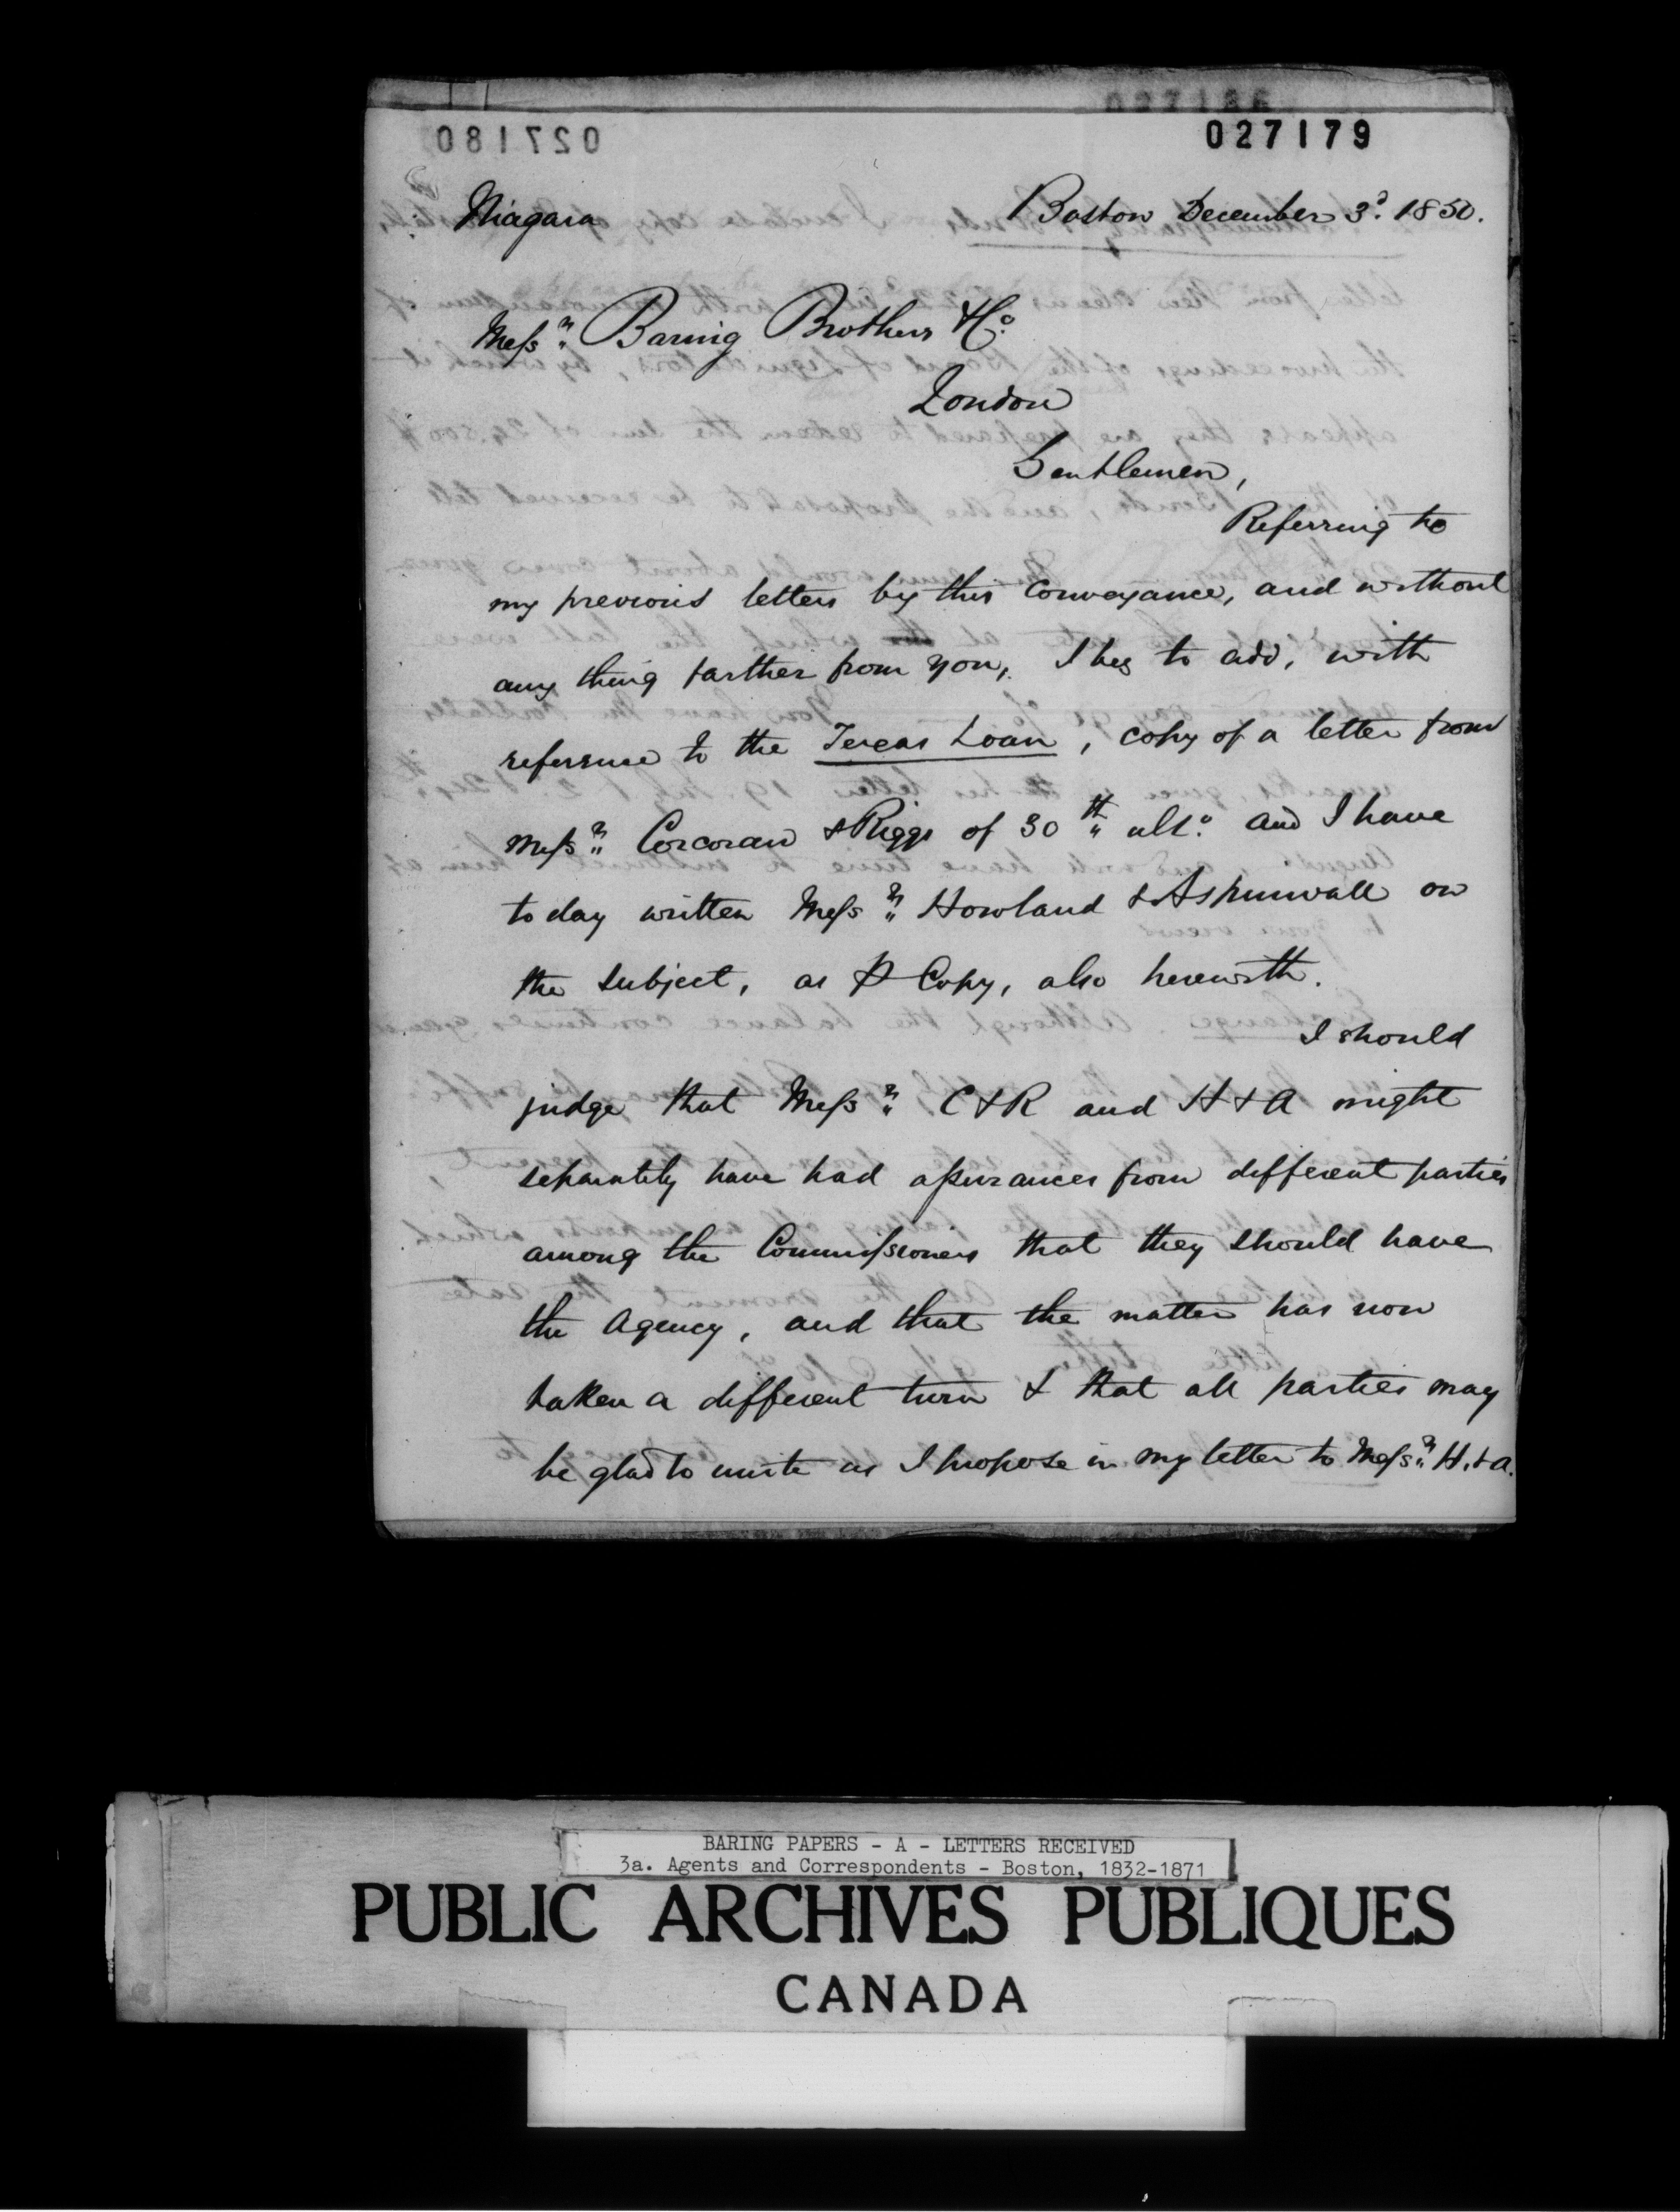 027179
Niagara
Boston December 3d. 1850.
Messrs. Baring Brothers & Co.
London
Gentlemen,
Referring to
my previous letters by this conveyance, and without
any thing farther from you, I beg to add, with
reference to the Texas Loan, copy of a letter from
Messrs. Corcoran & Riggs of 30th ulto. and I have
to day written Messrs. Howland & Aspinwall on
the subject, as P Copy, also herewith.
I should
judge that Messrs. C & R and H & A might
separately have had assurances from different parties
among the Commissioners that they should have
the Agency, and that the matter has now
taken a different turn & that all parties may
be glad to unite as I propose in my letter to Messrs. H. & A.
BARING PAPERS - A - LETTERS RECEIVED
3a. Agents and Correspondents - Boston, 1832-1871
PUBLIC ARCHIVES PUBLIQUES
CANADA